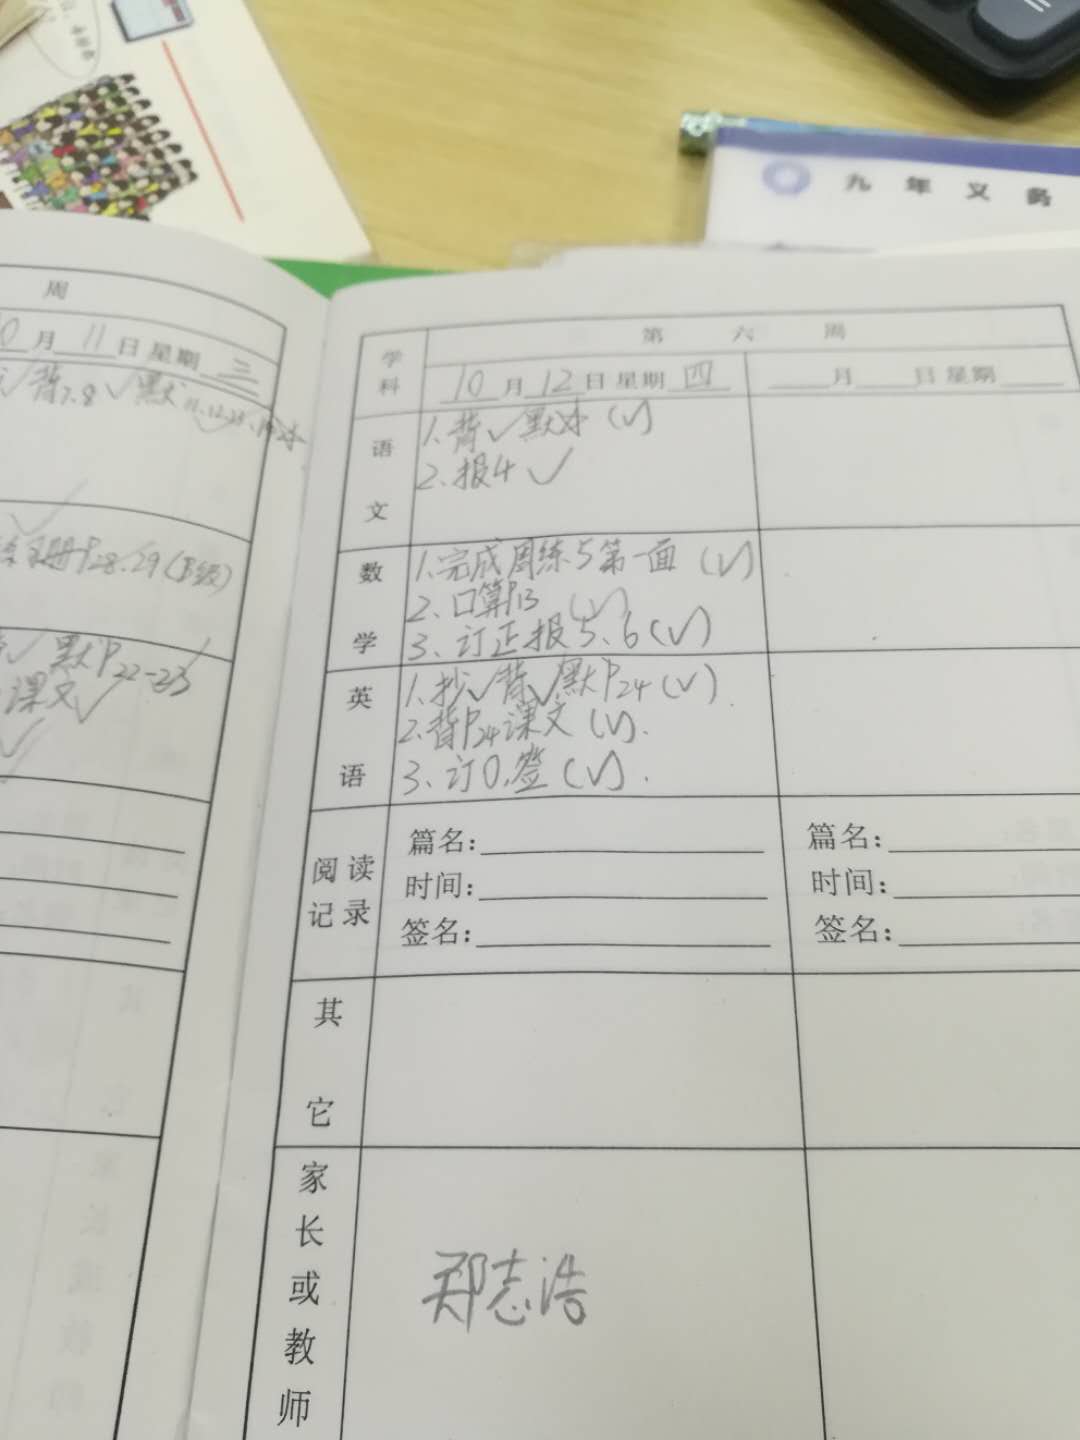 九年义务
周
0月11日 星期三
背7.8 √ 默
练习册P28、29(B级)
√ 默P22-23
课文√
学科
第六周
10月12日 星期四
月 日 星期
语文
1.背√默本(√)
2.报4 √
数学
1.完成周练5第一面(√)
2、口算P13 (√)
3、订正报5、6(√)
英语
1.抄√背√默P24(√)
2.背P24课文(√).
3、订0.签(√).
阅读记录
篇名: 篇名:
时间: 时间:
签名: 签名:
其它
家长或教师
郑志浩